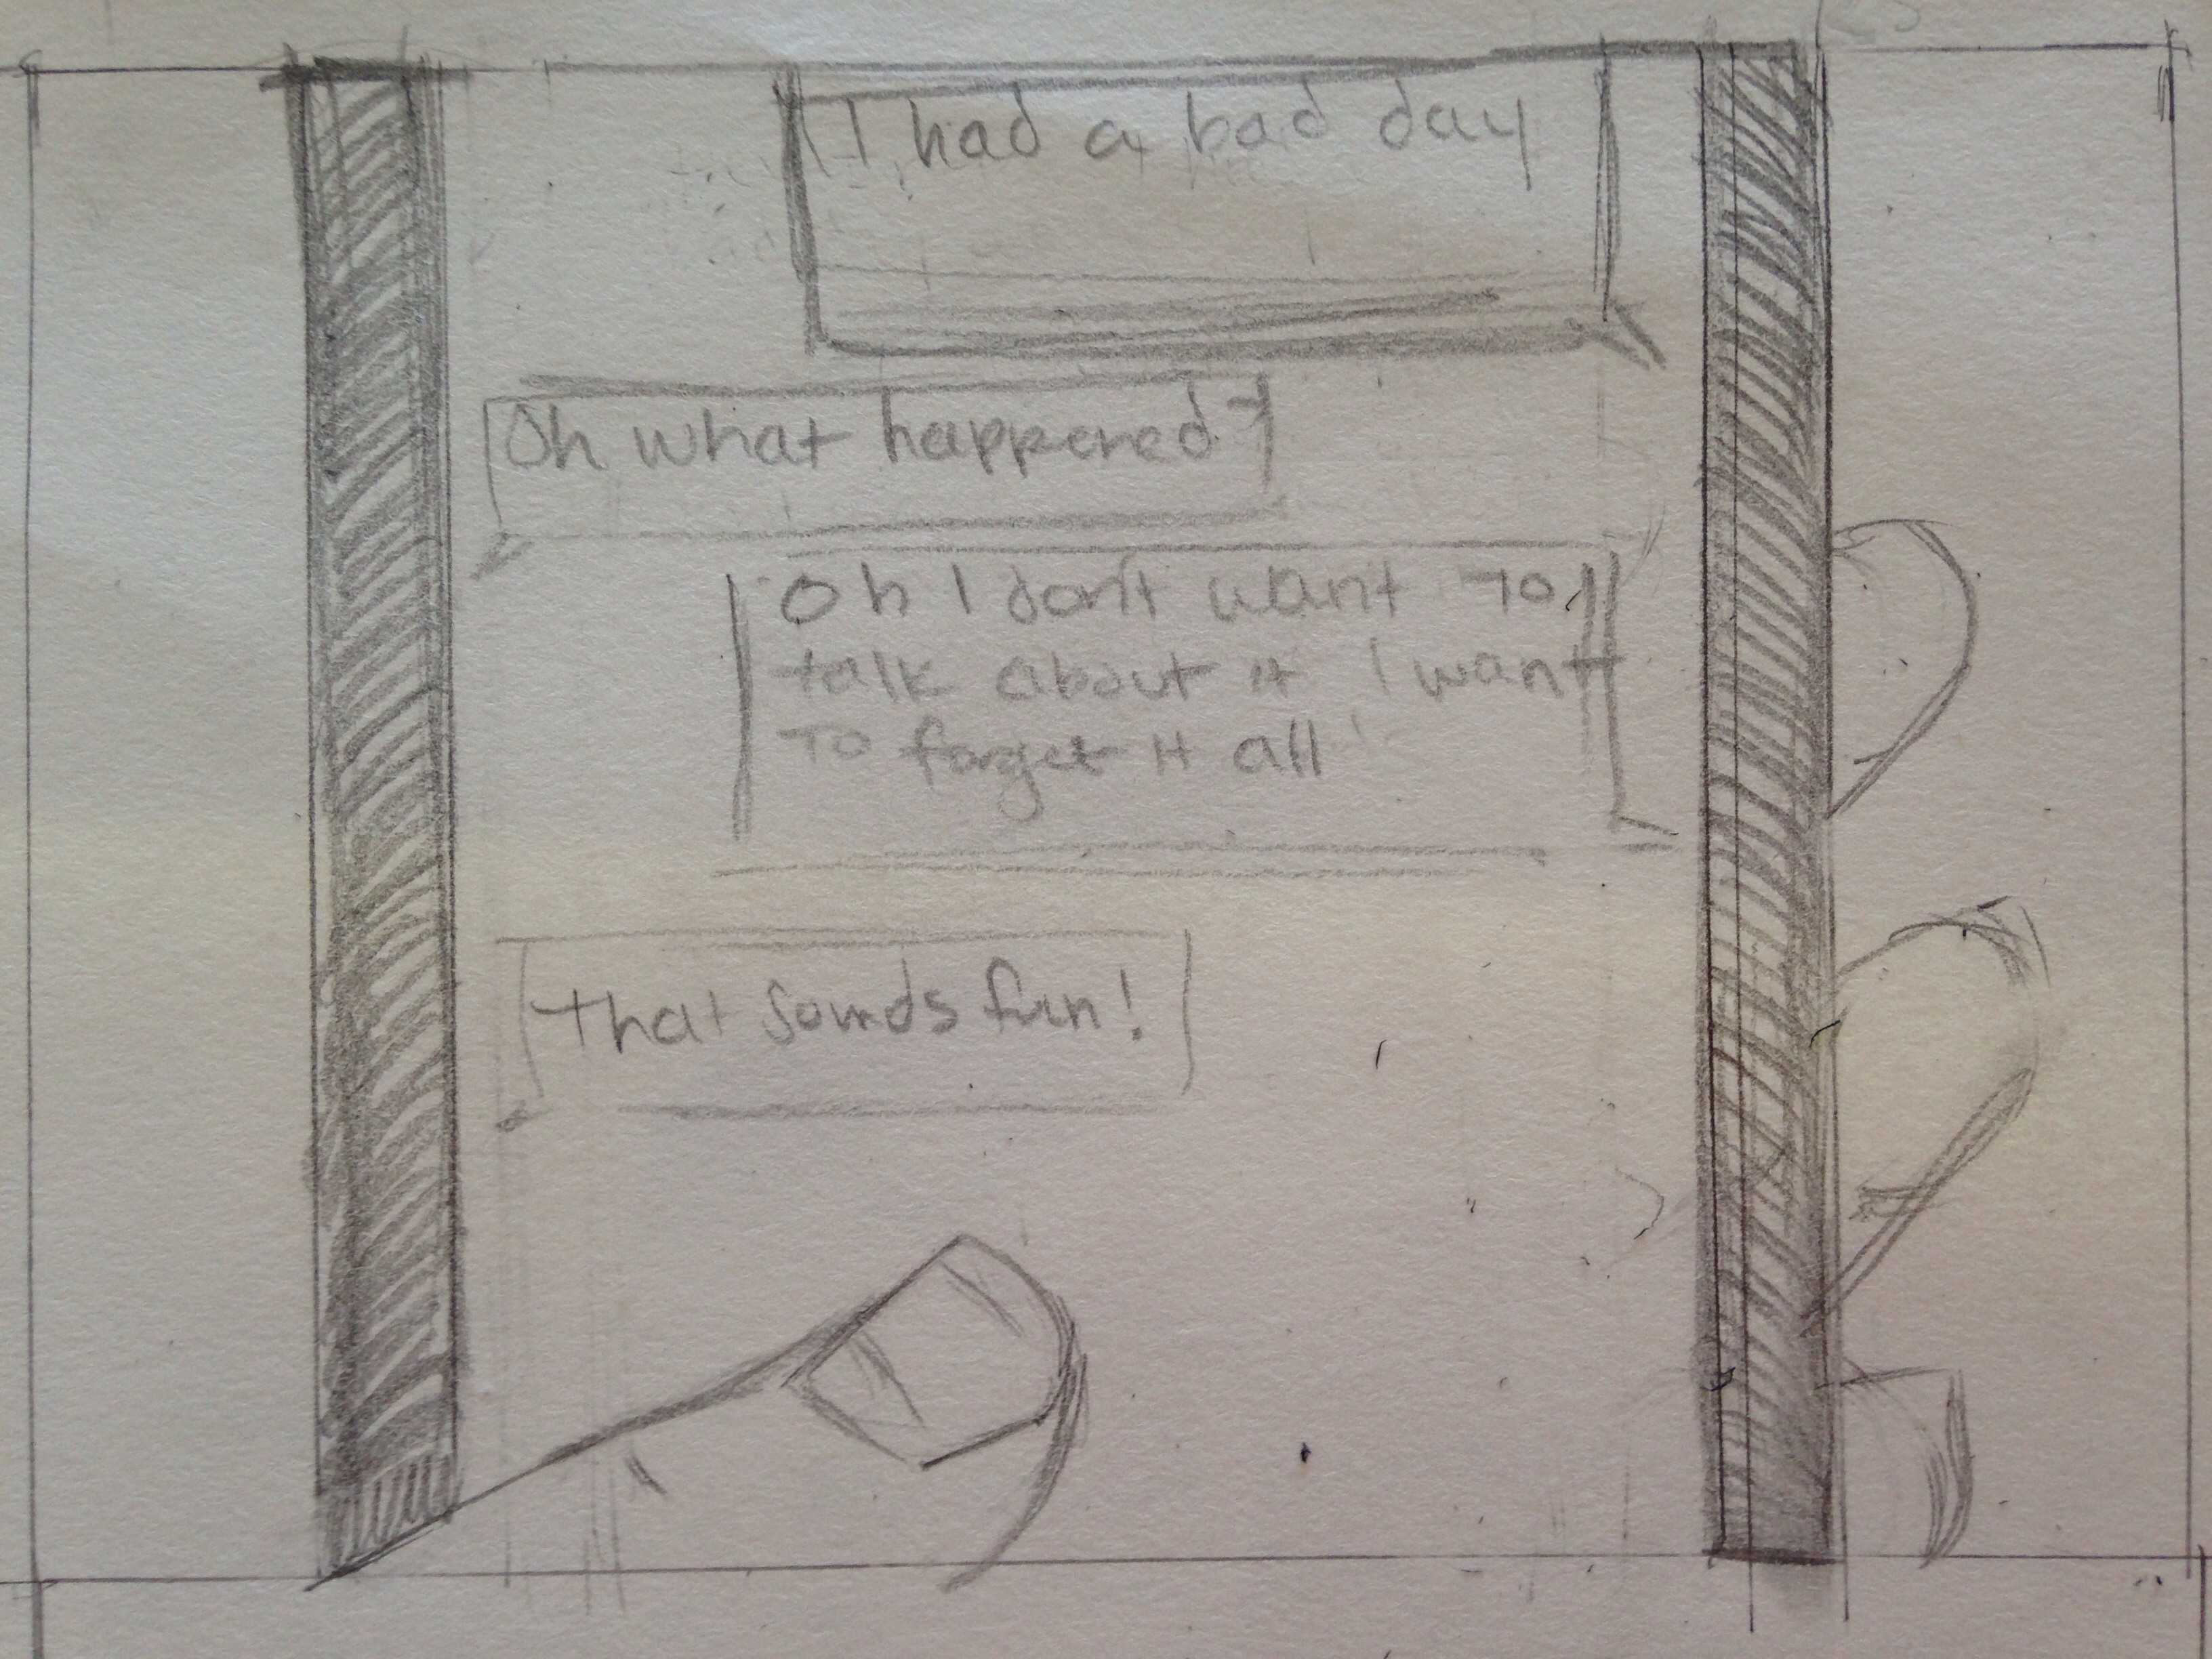 I had a bad day
Oh what happened?
Oh I don't want to
talk about it I want
to forget it all
that sounds fun!